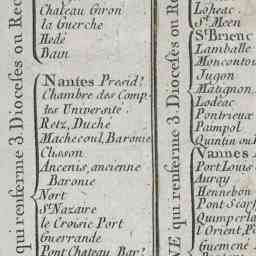 qui renferme 3 Dioceses ou Rec
Chateau Giron
la Guerche
Hedé
Bain
Nantes Presid.l
Chambre des Comp
tes Université
Retz, Duché
Machecoul, Baronie
Clisson
Ancenis, ancienne
Baronie
Nort
St Nazaire
le Croisic Port
Guerrande
Pont Chateau Bar.e
NE qui renferme 3 Dioceses ou R
Loheac
St Meen
St Brieuc
Lamballe
Moncontou
Jugon
Matignon
Lodeac
Pontrieux
Paimpol
Quintin ou
Vannes
Port Louis
Auray
Hennebon
Pont Scorf
Quimperla
l'Orient, Po
Guemené